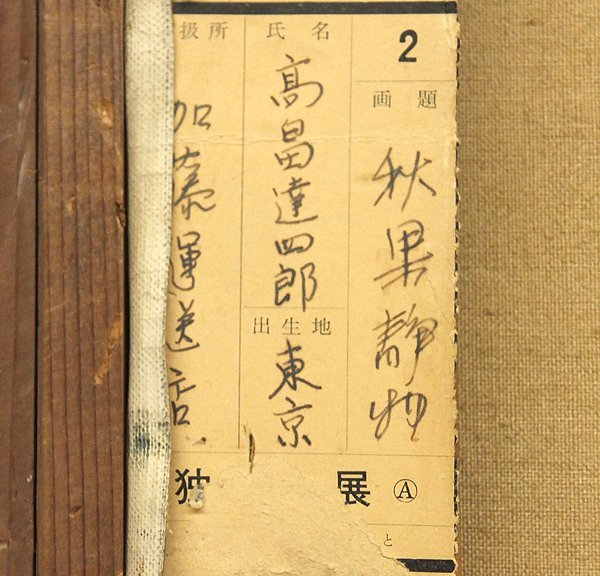 2
画題
秋果静物
氏名
髙畠達四郎
出生地
東京
扱所
加泰運送店
独 展 Ⓐ
と